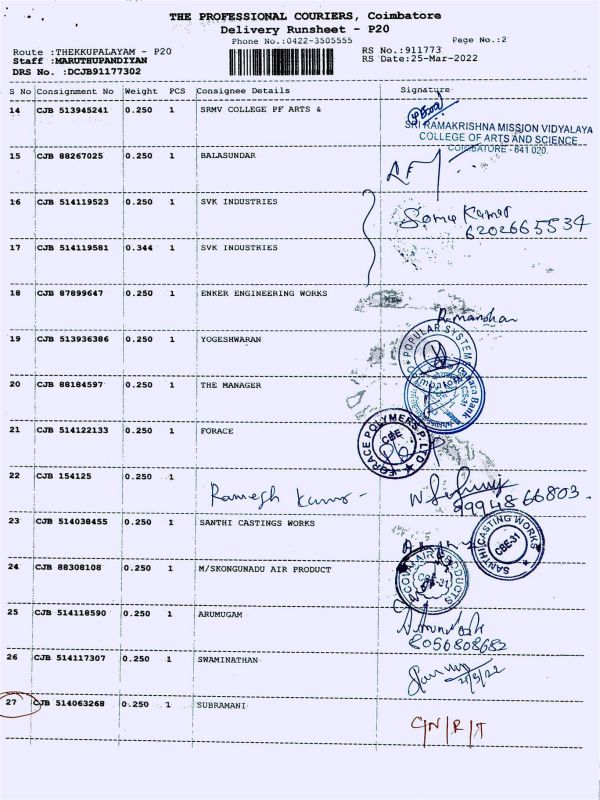 THE PROFESSIONAL COURIERS, Coimbatore
Delivery Runsheet - P20
Phone No.:0422-3505555 Page No.:2
Route :THEKKUPALAYAM - P20 RS No.:911773
Staff :MARUTHUPANDIYAN RS Date:25-Mar-2022
DRS No. :DCJB91177302
S No Consignment No Weight PCS Consignee Details Signature
14 CJB 513945241 0.250 1 SRMV COLLEGE PF ARTS &
SRI RAMAKRISHNA MISSION VIDYALAYA
COLLEGE OF ARTS AND SCIENCE
COIMBATORE - 641 020.
15 CJB 88267025 0.250 1 BALASUNDAR
16 CJB 514119523 0.250 1 SVK INDUSTRIES
6202665534
17 CJB 514119581 0.344 1 SVK INDUSTRIES
18 CJB 87899647 0.250 1 ENKER ENGINEERING WORKS
19 CJB 513936386 0.250 1 YOGESHWARAN
POPULAR SYSTEM
20 CJB 88184597 0.250 1 THE MANAGER
Canara Bank
21 CJB 514122133 0.250 1 FORACE
FORACE POLYMERS P. LTD
CBE
22 CJB 154125 0.250 1
Ramesh Kumar -
9994866803.
23 CJB 514038455 0.250 1 SANTHI CASTINGS WORKS
SANTHI CASTING WORKS
CBE-31
24 CJB 88308108 0.250 1 M/SKONGUNADU AIR PRODUCT
25 CJB 514118590 0.250 1 ARUMUGAM
8056808682
26 CJB 514117307 0.250 1 SWAMINATHAN
27 CJB 514063268 0.250 1 SUBRAMANI
C/N/R/T